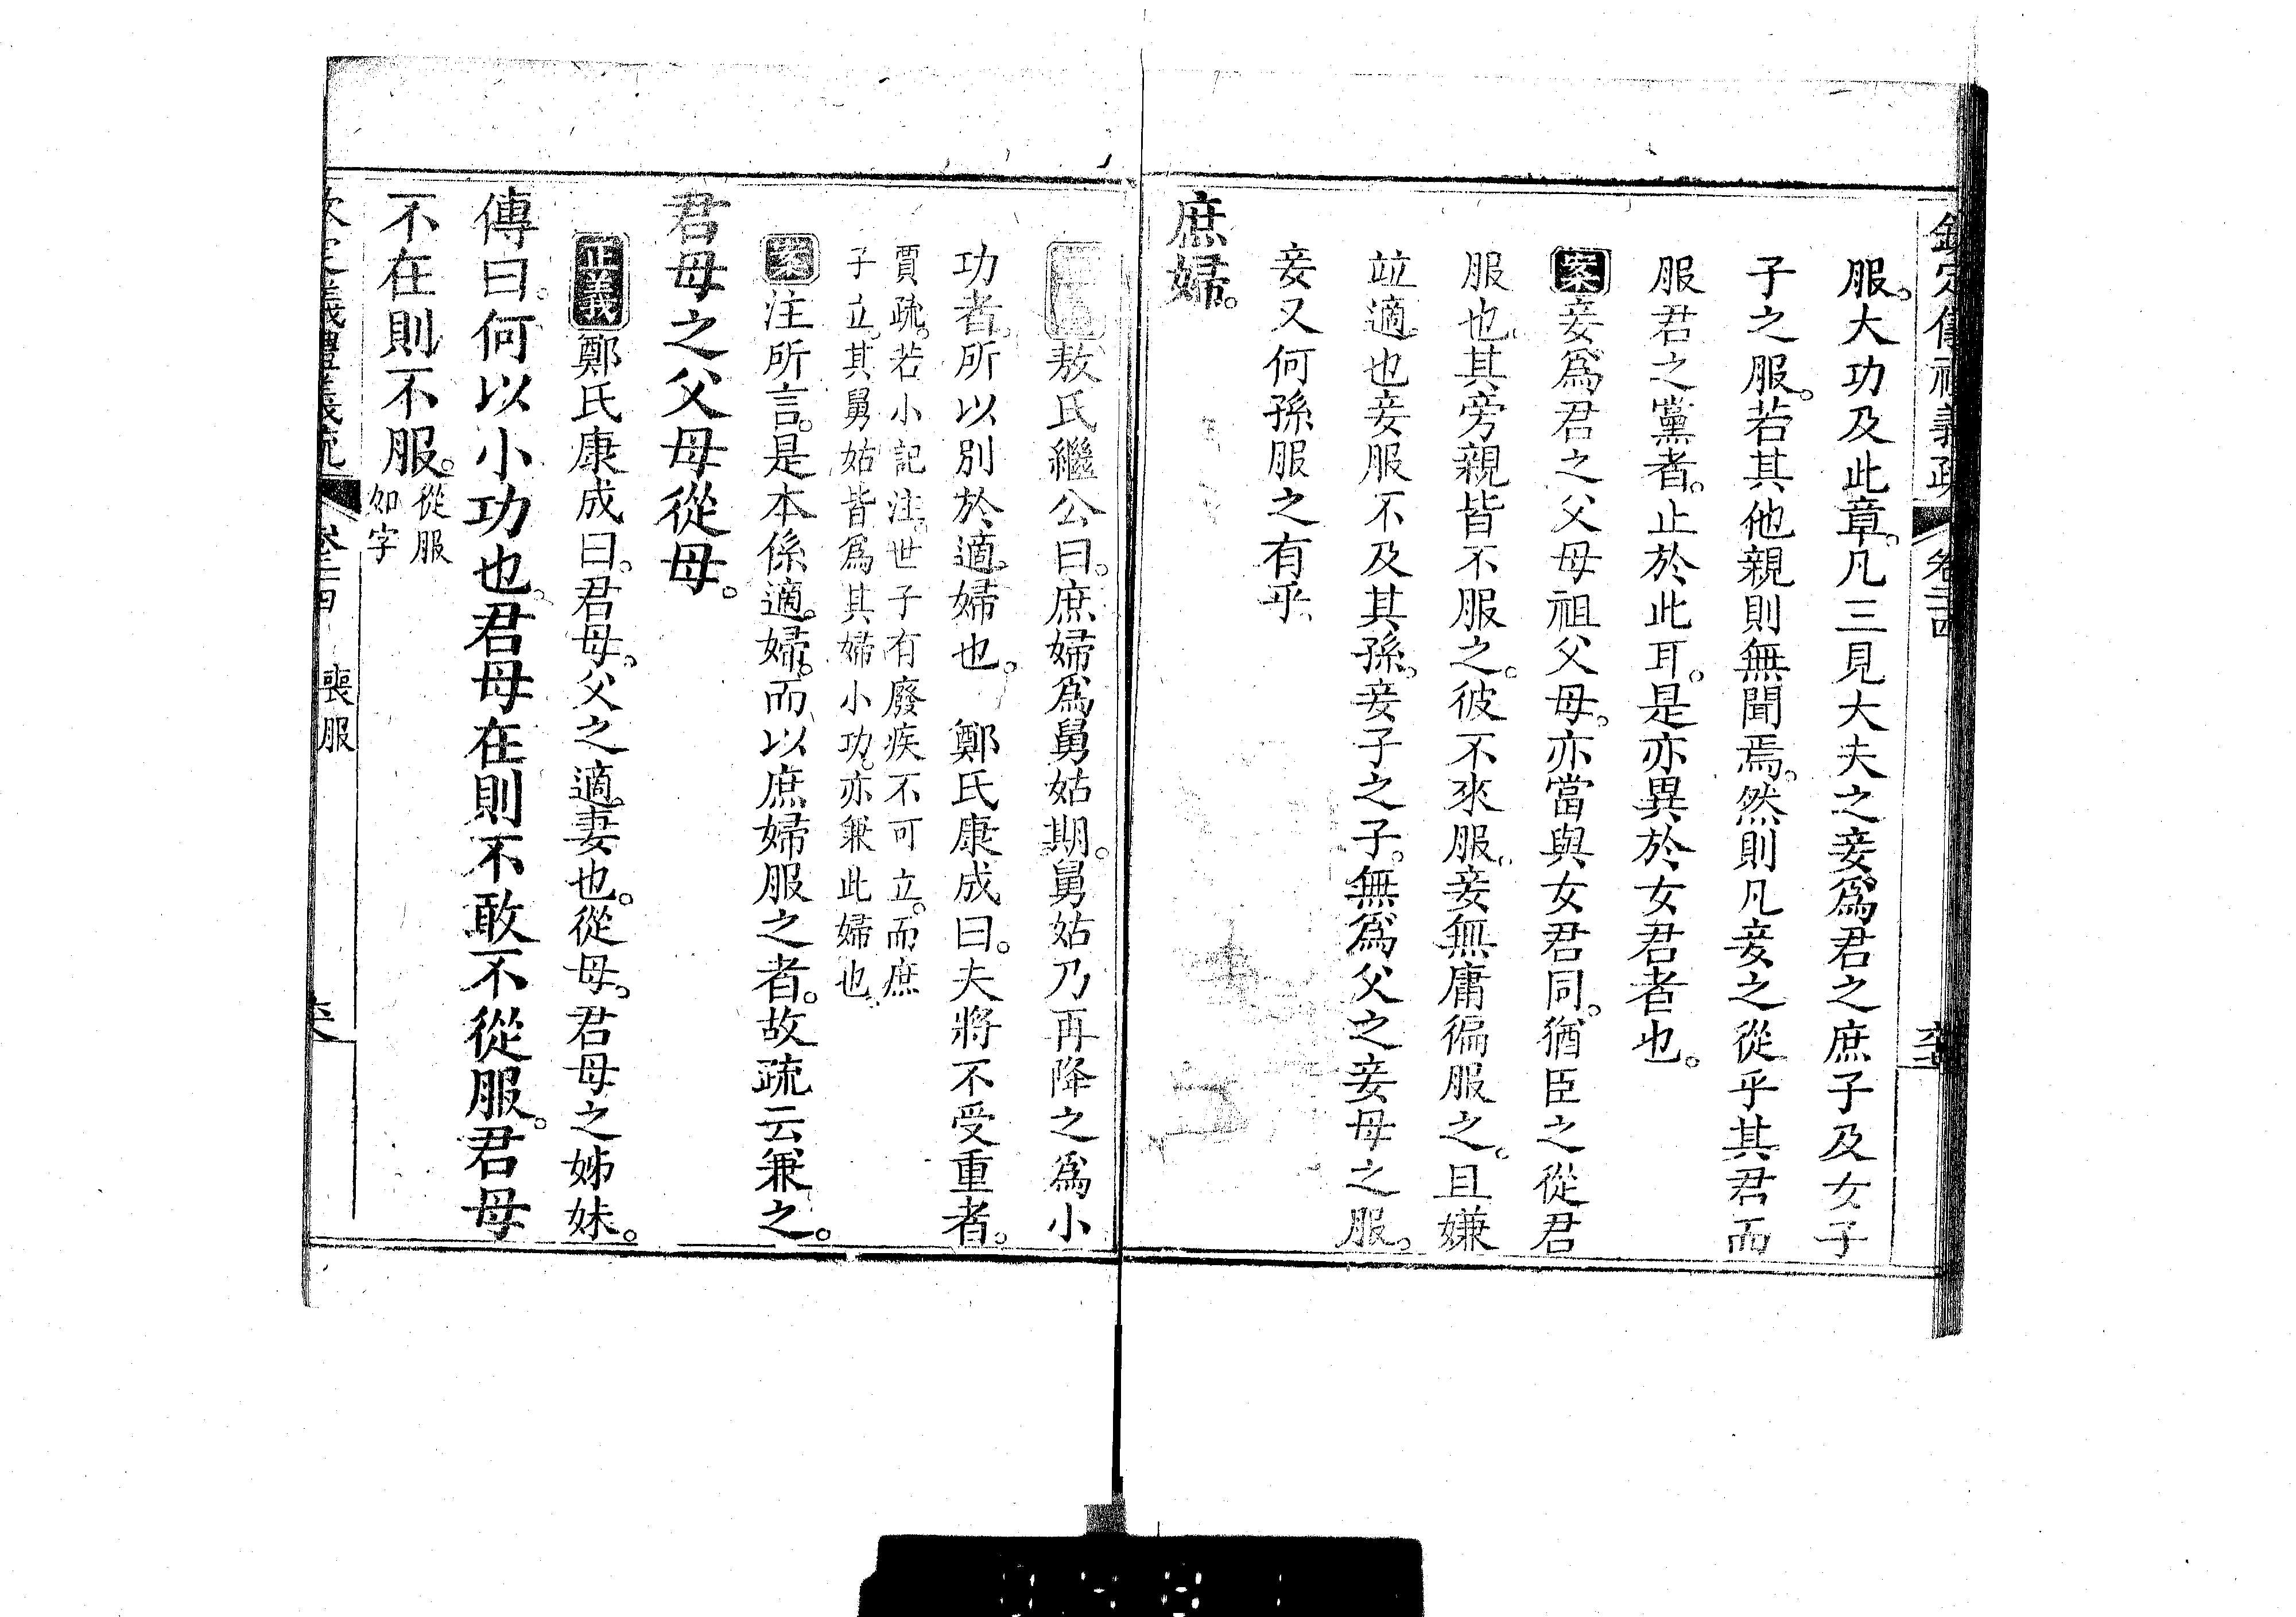 欽定儀禮義疏 卷二十四
服。大功及此章。凡三見大夫之妾。爲君之庶子及女子
子之服。若其他親則無聞焉。然則凡妾之從乎其君而
服君之黨者。止於此耳。是亦異於女君者也。
案妾爲君之父母祖父母。亦當與女君同。猶臣之從君
服也。其旁親皆不服之。彼不來服。妾無庸徧服之。且嫌
竝適也。妾服不及其孫。妾子之子。無爲父之妾母之服。
妾又何孫服之有乎。
庶婦。
敖氏繼公曰。庶婦爲舅姑期。舅姑乃再降之爲小
功者。所以別於適婦也。 鄭氏康成曰。夫將不受重者。
賈疏。若小記注。世子有廢疾不可立。而庶
子立。其舅姑皆爲其婦小功。亦兼此婦也。
案注所言。是本係適婦。而以庶婦服之者。故疏云兼之。
君母之父母從母。
正義鄭氏康成曰。君母。父之適妻也。從母。君母之姊妹。
傳曰。何以小功也。君母在則不敢不從服。君母
不在則不服。從服
如字
義禮義疏 卷二十四 喪服